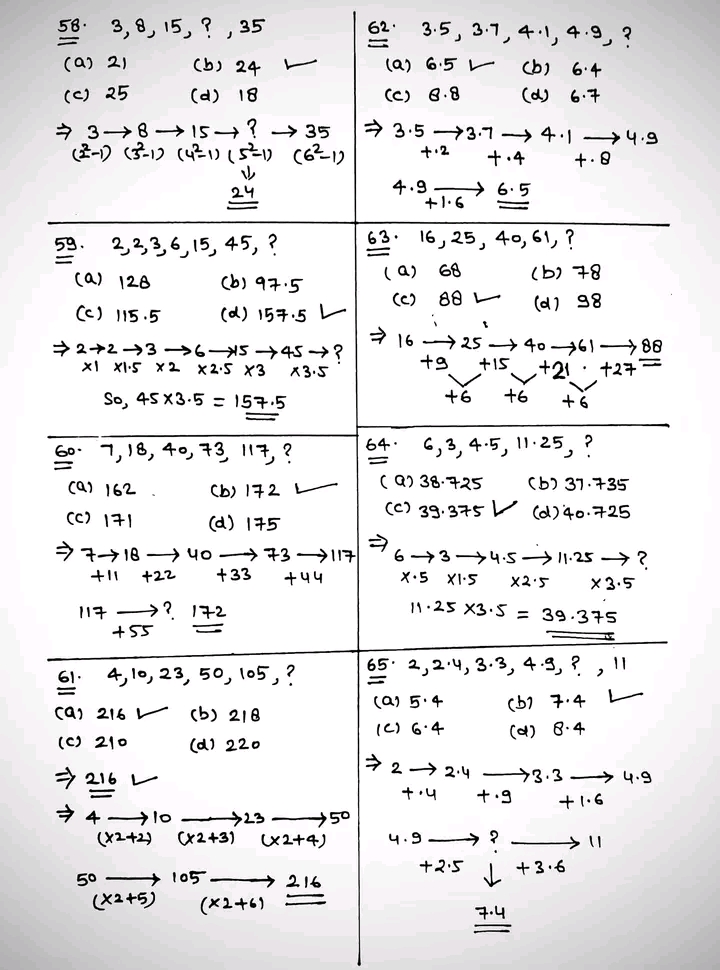 58. 3, 8, 15, ?, 35
(a) 21 (b) 24 ✓
(c) 25 (d) 18
⇒ 3 → 8 → 15 → ? → 35
(2²-1) (3²-1) (4²-1) (5²-1) (6²-1)
↓
24
59. 2, 2, 3, 6, 15, 45, ?
(a) 128 (b) 97.5
(c) 115.5 (d) 157.5 ✓
⇒ 2 → 2 → 3 → 6 → 15 → 45 → ?
×1 ×1.5 ×2 ×2.5 ×3 ×3.5
So, 45 × 3.5 = 157.5
60. 7, 18, 40, 73, 117, ?
(a) 162 (b) 172 ✓
(c) 171 (d) 175
⇒ 7 → 18 → 40 → 73 → 117
+11 +22 +33 +44
117 → ? 172
+55
61. 4, 10, 23, 50, 105, ?
(a) 216 ✓ (b) 218
(c) 210 (d) 220
⇒ 216 ✓
⇒ 4 → 10 → 23 → 50
(×2+2) (×2+3) (×2+4)
50 → 105 → 216
(×2+5) (×2+6)
62. 3.5, 3.7, 4.1, 4.9, ?
(a) 6.5 ✓ (b) 6.4
(c) 8.8 (d) 6.7
⇒ 3.5 → 3.7 → 4.1 → 4.9
+.2 +.4 +.8
4.9 → 6.5
+1.6
63. 16, 25, 40, 61, ?
(a) 68 (b) 78
(c) 88 ✓ (d) 98
⇒ 16 → 25 → 40 → 61 → 88
+9 +15 +21 +27
+6 +6 +6
64. 6, 3, 4.5, 11.25, ?
(a) 38.725 (b) 37.735
(c) 39.375 ✓ (d) 40.725
⇒ 6 → 3 → 4.5 → 11.25 → ?
×.5 ×1.5 ×2.5 ×3.5
11.25 × 3.5 = 39.375
65. 2, 2.4, 3.3, 4.9, ?, 11
(a) 5.4 (b) 7.4 ✓
(c) 6.4 (d) 8.4
⇒ 2 → 2.4 → 3.3 → 4.9
+.4 +.9 +1.6
4.9 → ? → 11
+2.5 ↓ +3.6
7.4